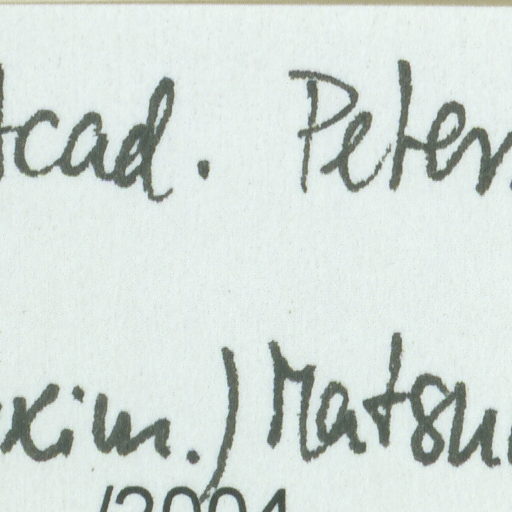 Acad. Peters
xim.) Matsu
/2004